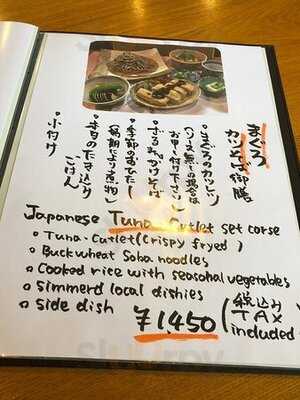 まぐろ
カツそば御膳
・まぐろのカツレツ
(ソース無しの場合は
お申し付け下さい)
・季節のおひたし
(時期により煮物)
・本日のたきこみ
ごはん
・小付け
Japanese Tuna Cutlet set corse
• Tuna-Cutlet (Crispy fryed)
• Buckwheat Soba noodles
• Cooked rice with seasonal vegetables
• Simmerd local dishies
• Side dish
¥1,450 (税込み
TAX
included)